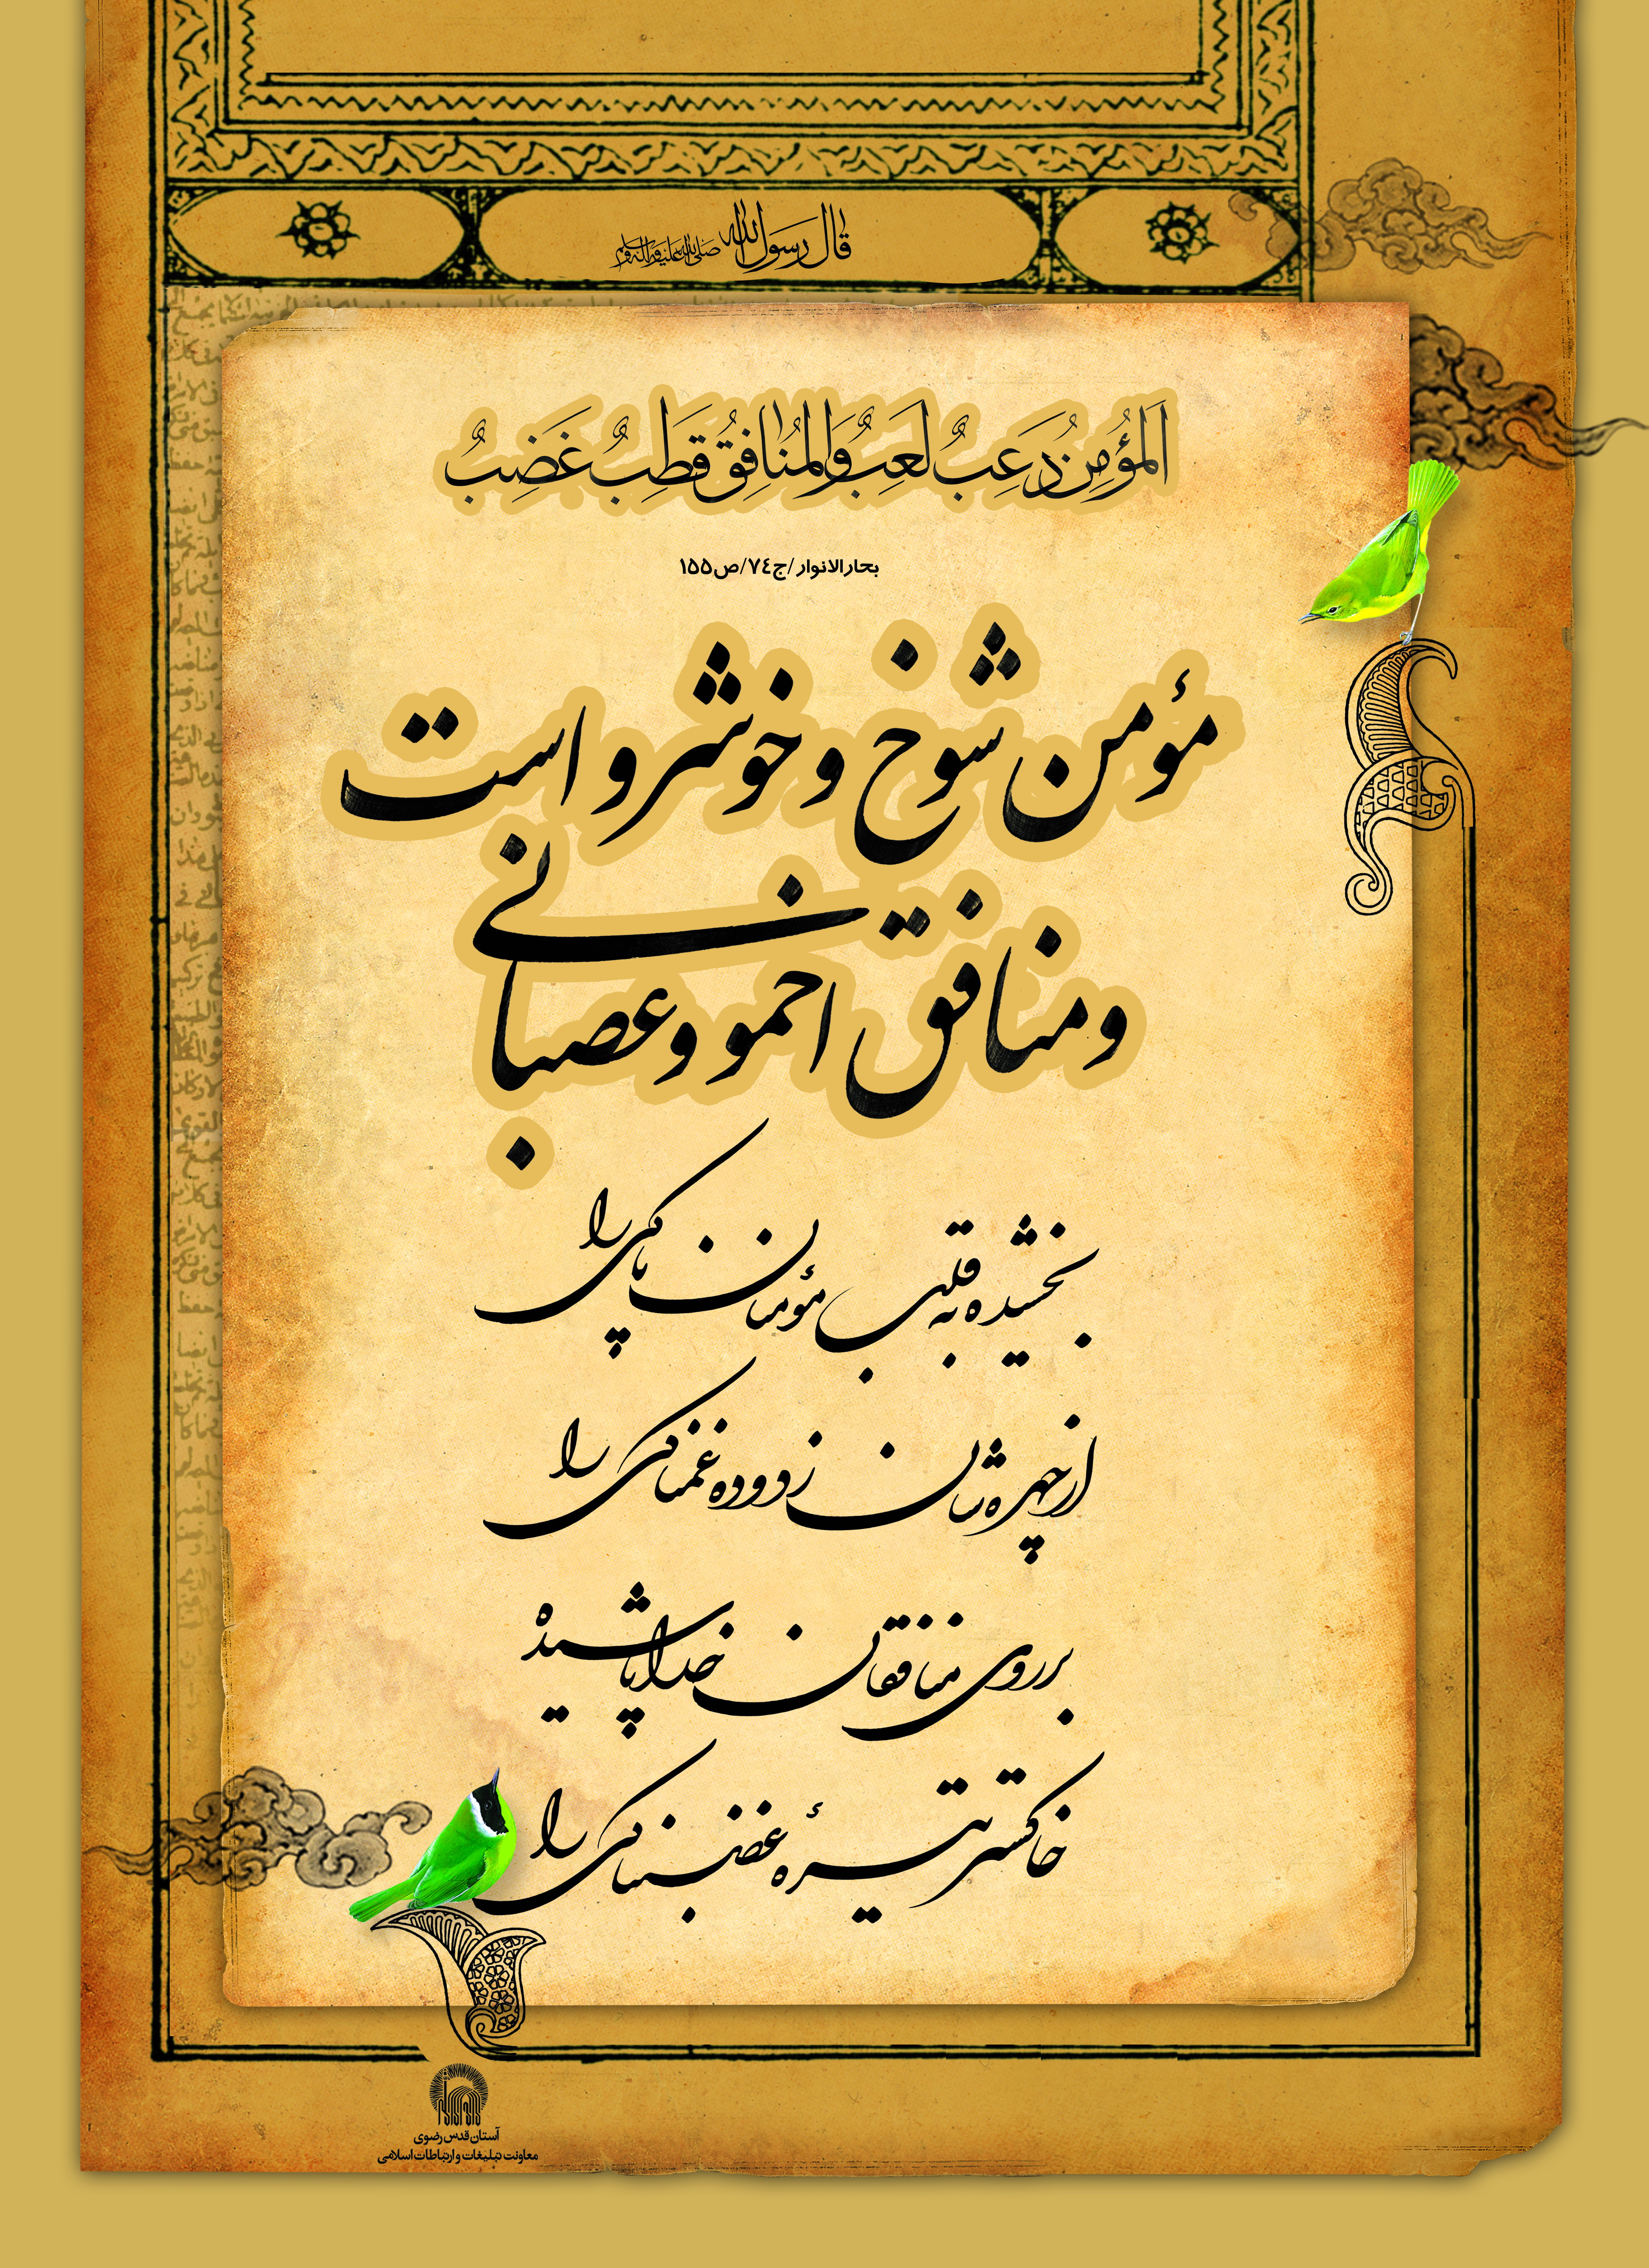 قال رسول الله صلی الله علیه و آله و سلم
اَلمُؤمِنُ دَعِبٌ لَعِبٌ وَالمُنافِقُ قَطِبٌ غَضِبٌ
بحارالانوار/ج٧٤/ص١٥٥
مؤمن شوخ و خوشرو است
و منافق اخمو و عصبانی
بخشیده به قلب مؤمنان پاکی را
از چهره‌شان زدوده غمناکی را
بر روی منافقان خدا پاشیده
خاکستر تیرۀ غضبناکی را
آستان قدس رضوی
معاونت تبلیغات و ارتباطات اسلامی